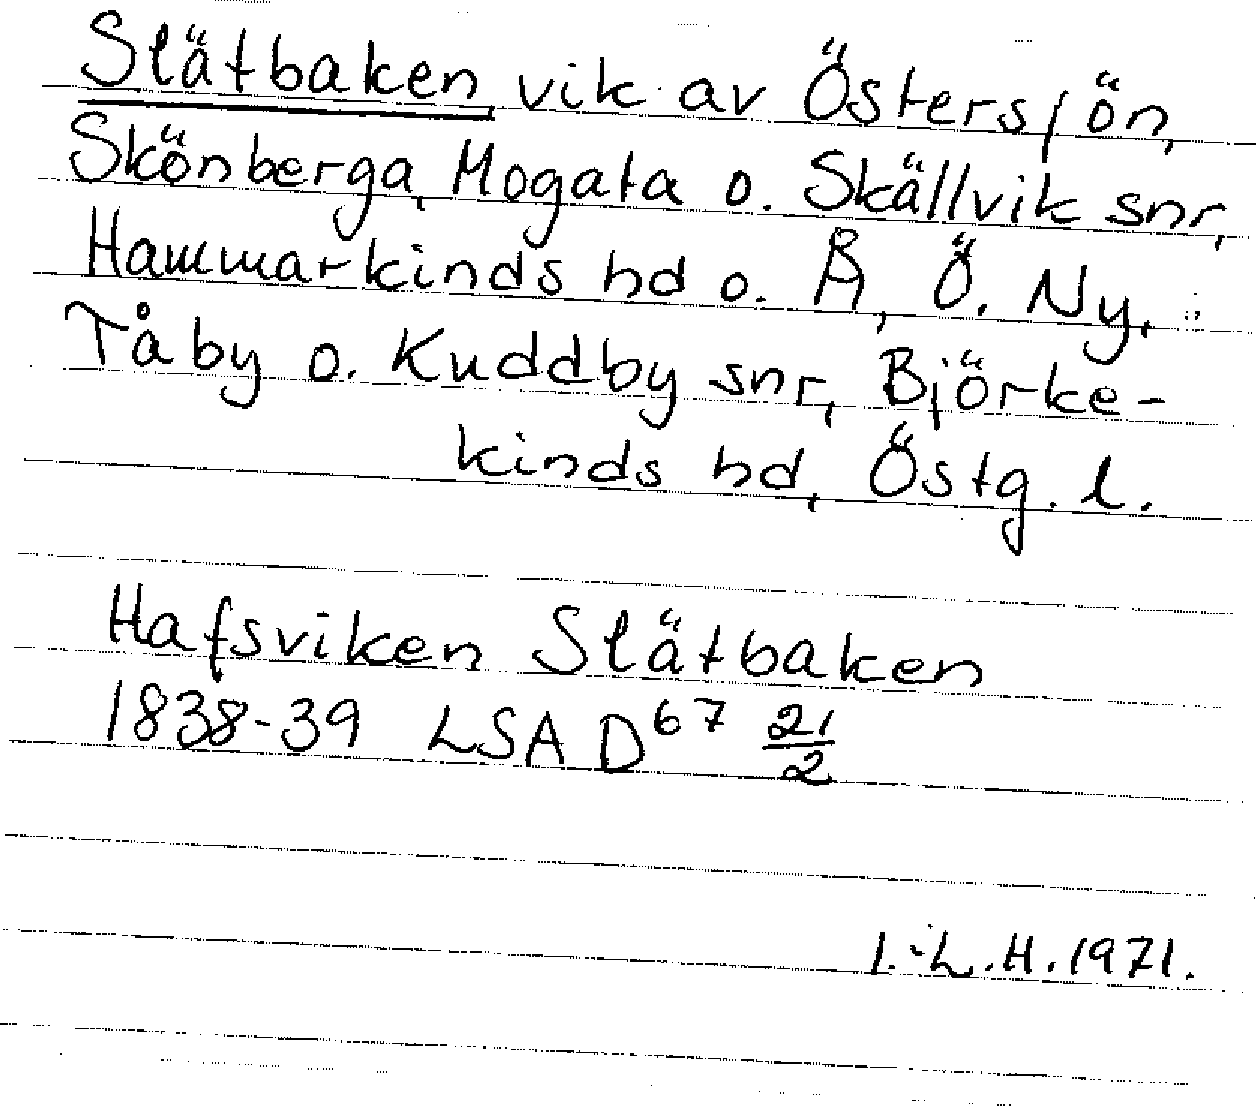 Slätbaken vik av Östersjön,
Skönberga, Mogata o. Skällvik snr,
Hammarkinds hd o. Å, Ö. Ny,
Tåby o. Kuddby snr, Björke-
kinds hd, Östg. l.
Hafsviken Slätbaken
1838-39 LSA D⁶⁷ 21/2
I.-L.H. 1971.